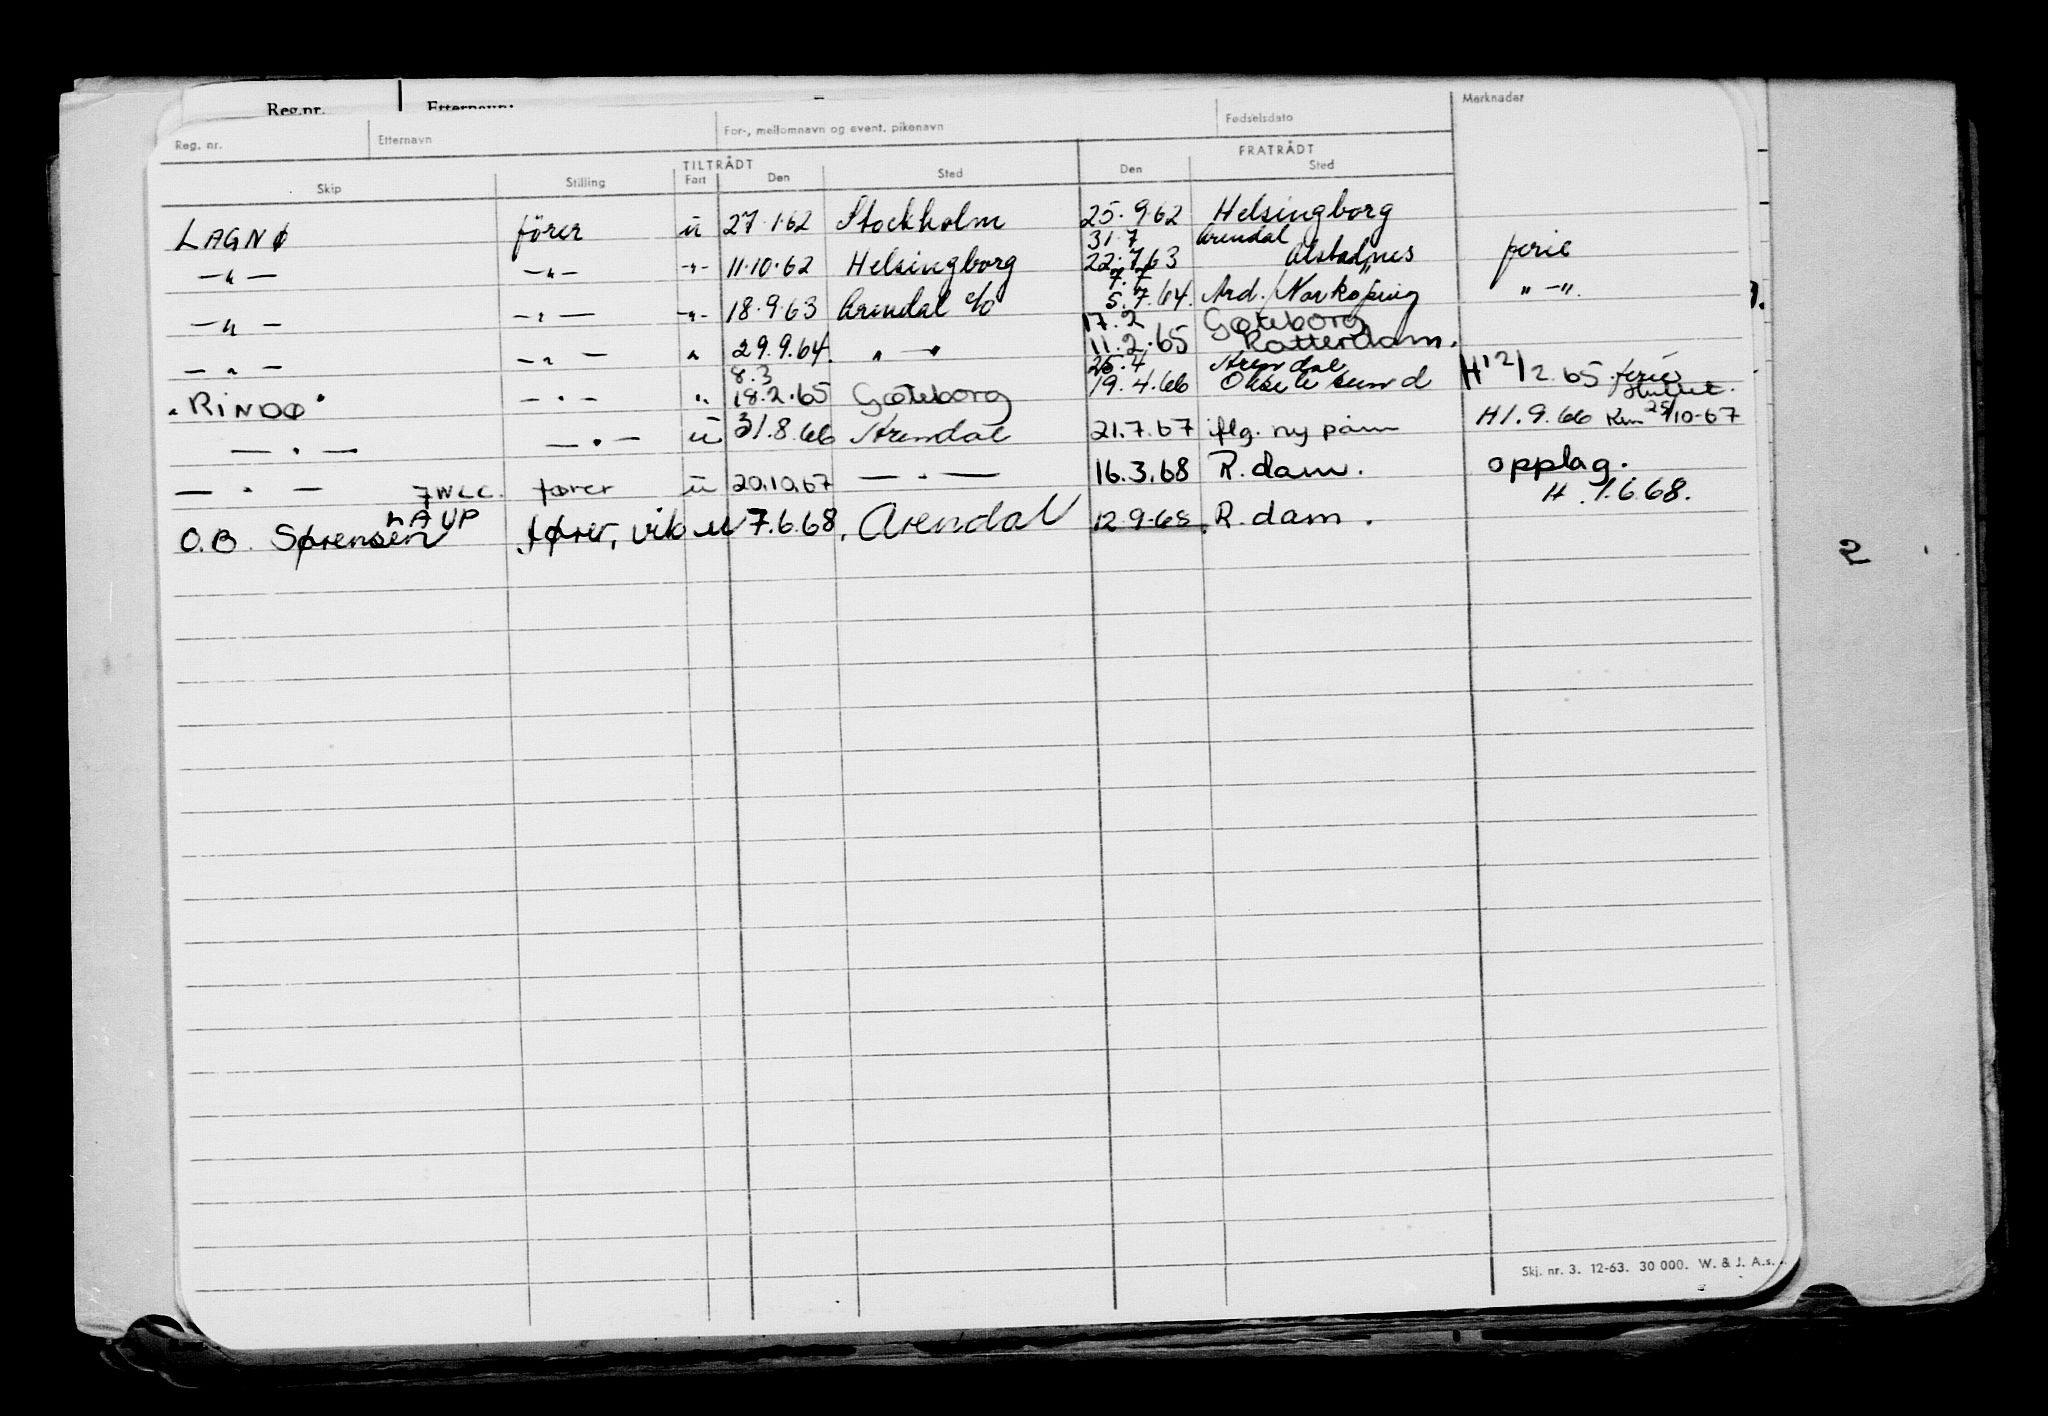 Reg.nr. Etternavn:
Reg. nr. Etternavn For-, mellomnavn og event. pikenavn Fødselsdato Merknader
TILTRÅDT FRATRÅDT
Skip Stilling Fart Den Sted Den Sted
LAGNØ fører u 27.1.62 Stockholm 25.9.62 Helsingborg
31.7 Arendal
—"— —"— -"- 11.10.62 Helsingborg 22.7.63 ferie
—"— —"— -"- 18.9.63 Arendal 5.7.64. Ard./Norkøping "—".
17.2 Gøteborg
—"— —"— " 29.9.64. "—" 11.2.65 Rotterdam.
8.3 26.4 Arendal
"RINDØ" —"— " 18.2.65 Gøteborg 19.4.66 H12/2.65 ferie
—"— —"— u 31.8.66 Arendal 21.7.67 iflg. ny påm H1.9.66 25/10-67
—"— 7WLC. fører u 20.10.67 —"— 16.3.68 R.dam. opplag.
H.1.6.68.
LAUP
O.B. Sørensen fører, vik u 7.6.68. Arendal 12.9.68. R.dam.
2
Skj. nr. 3. 12-63. 30 000. W. & J. A.s.